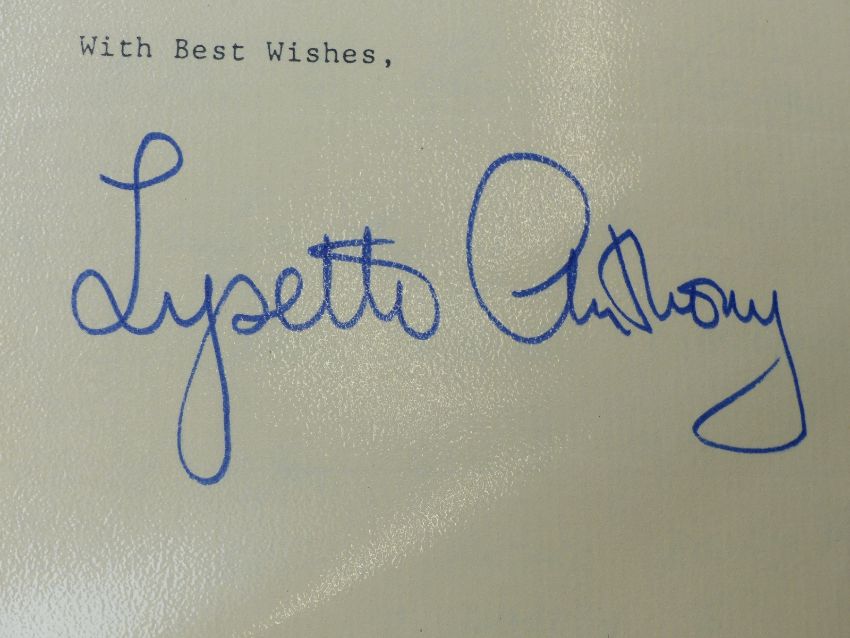 With Best Wishes,
Lysette Anthony